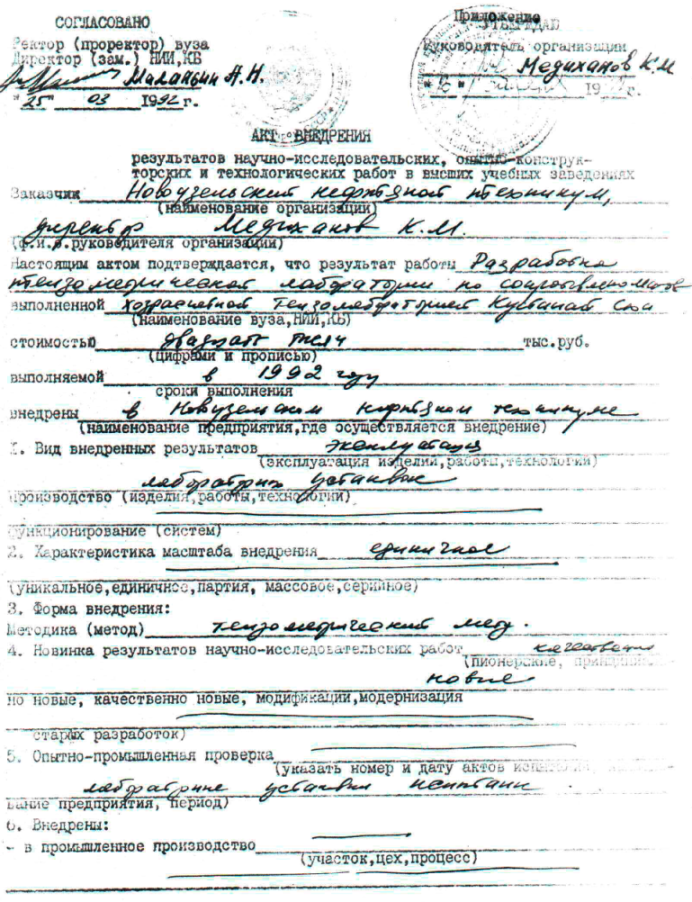 СОГЛАСОВАНО
Ректор (проректор) вуза
Директор (зам.) НИИ,КБ
Маланьин А.Н.
"25" 03 1992г.
Приложение
УТВЕРЖДАЮ
Руководитель организации
Медиханов К.М
АКТ ВНЕДРЕНИЯ
результатов научно-исследовательских, опытно-конструк-
торских и технологических работ в высших учебных заведениях
Заказчик Новоузельский нефтяной техникум,
(наименование организации)
директор Медиханов К.М.
(ф.и.о.руководителя организации)
Настоящим актом подтверждается, что результат работы Разработка
тензометрической лаборатории по
выполненной хозрасчетной тензолабораторией
(наименование вуза,НИИ,КБ)
стоимостью двадцать тысяч тыс.руб.
(цифрами и прописью)
выполняемой в 1992 году
сроки выполнения
внедрены в Новоузельском нефтяном техникуме
(наименование предприятия,где осуществляется внедрение)
1. Вид внедренных результатов эксплуатация
(эксплуатация изделий,работы,технологии)
установок
производство (изделия,работы,технологии)
функционирование (систем)
2. Характеристика масштаба внедрения единичное
(уникальное,единичное,партия, массовое,серийное)
3. Форма внедрения:
Методика (метод) тензометрический мет.
4. Новинка результатов научно-исследовательских работ качественно
(пионерские,
новые
но новые, качественно новые, модификации,модернизация
старых разработок)
5. Опытно-промышленная проверка
(указать номер и дату актов
вание предприятия, период)
6. Внедрены:
- в промышленное производство
(участок,цех,процесс)